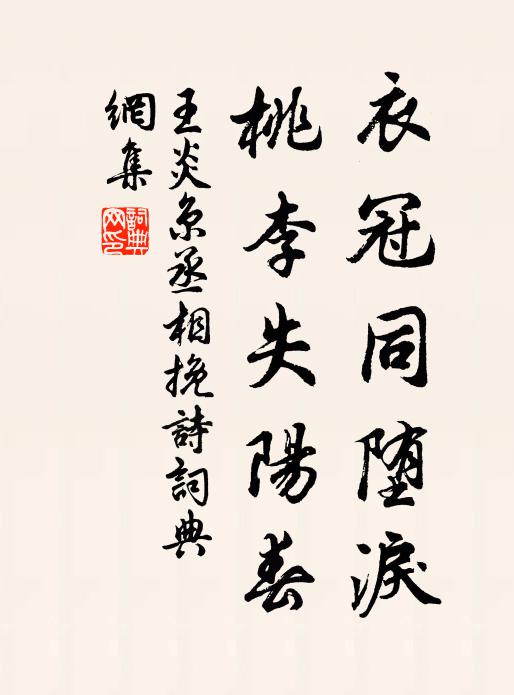 衣冠同堕淚
桃李失陽春
王炎京丞相挽詩詞典
網集
詞典网印